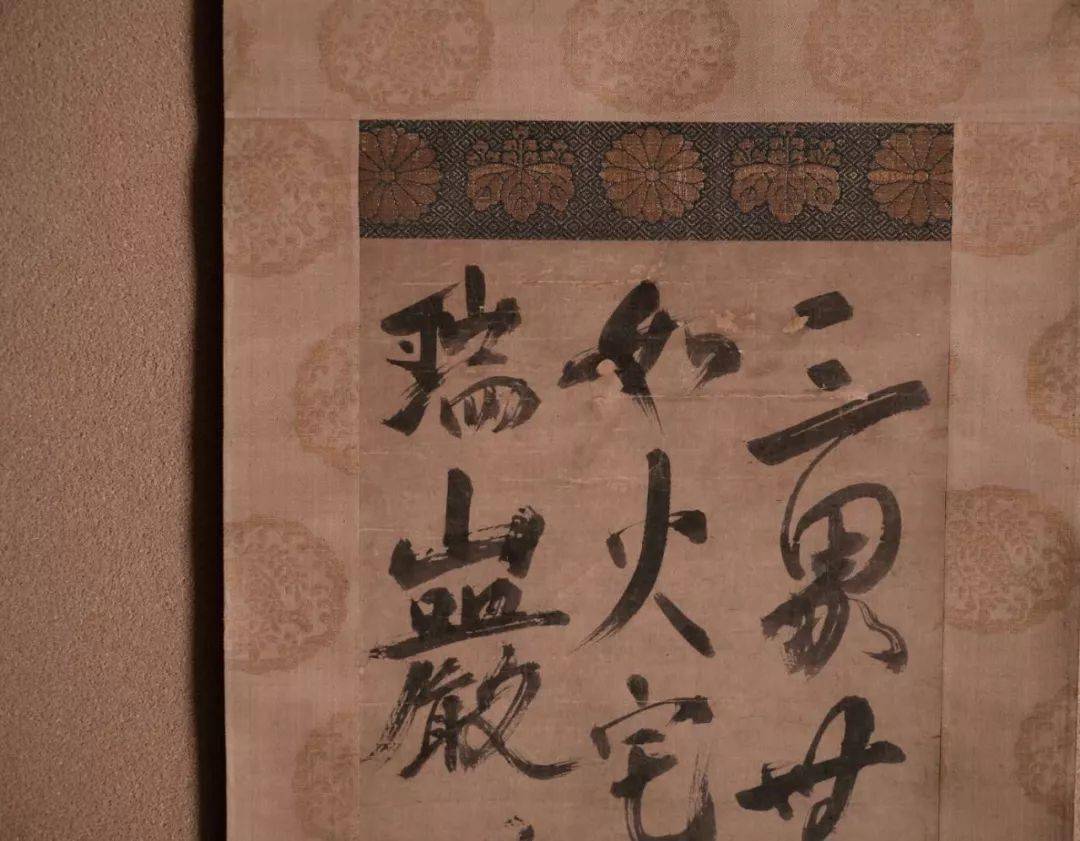 三界
如火宅
瑞巖